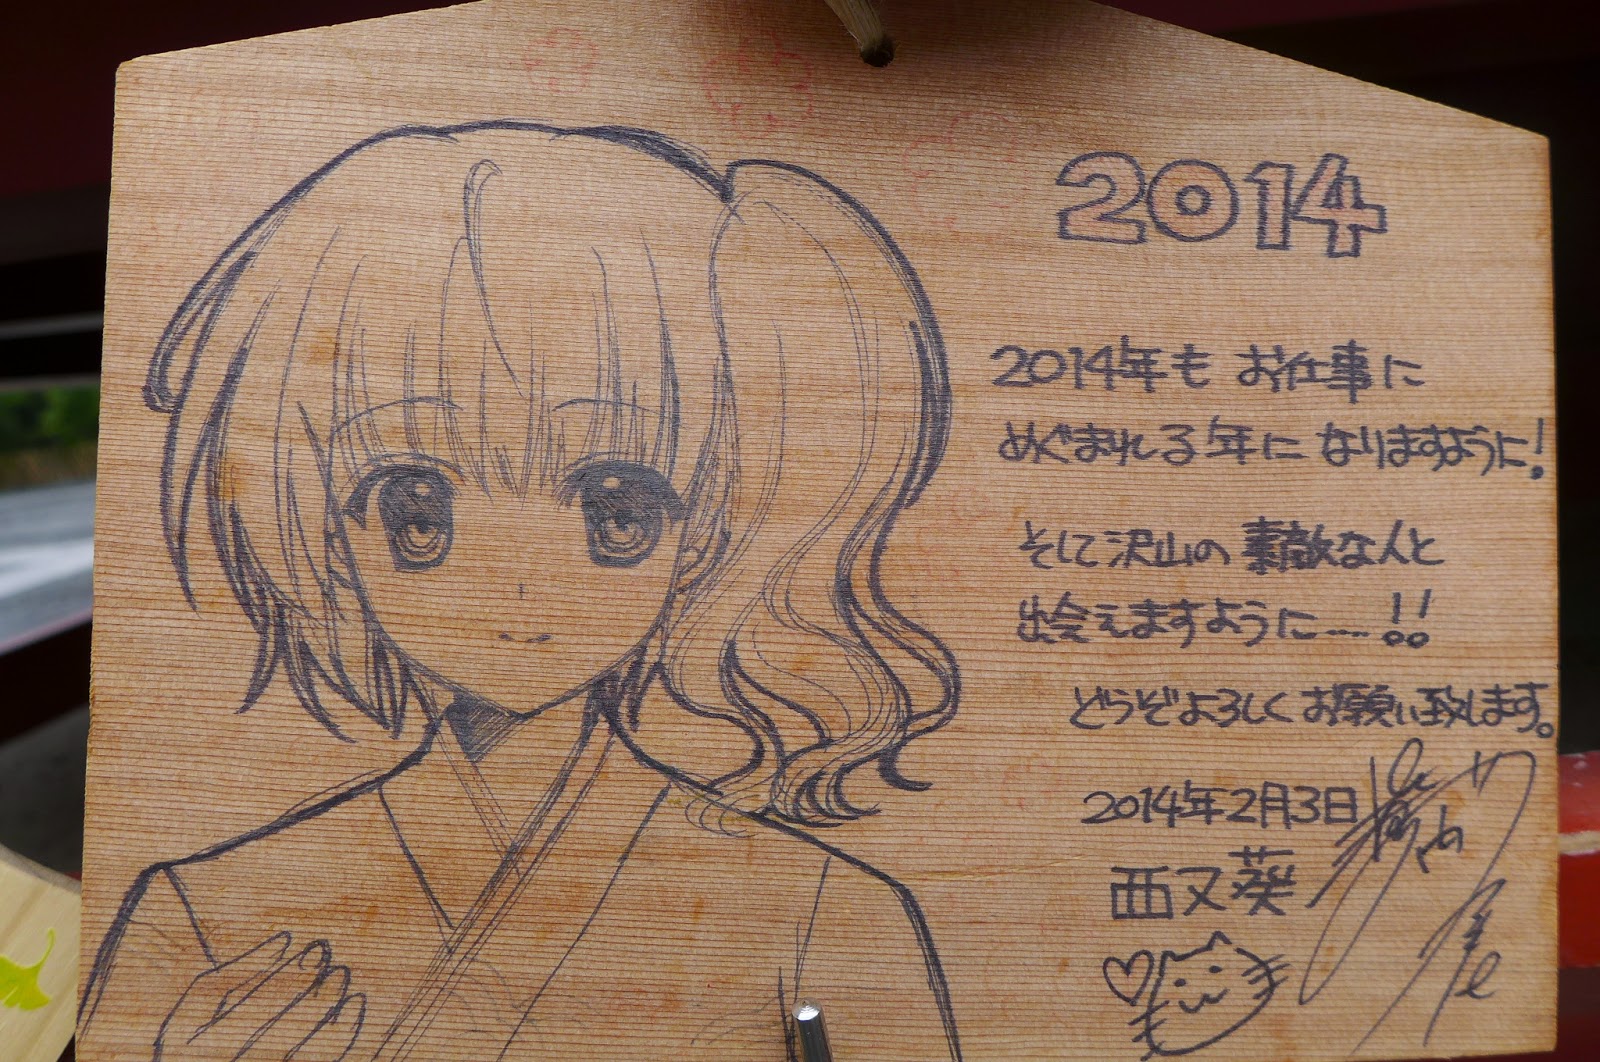 2014
2014年も お仕事に
めぐまれる年に なりますように!
そして沢山の 素敵な人と
出会えますように……!!
どうぞよろしくお願い致します。
2014年2月3日
亜又葵